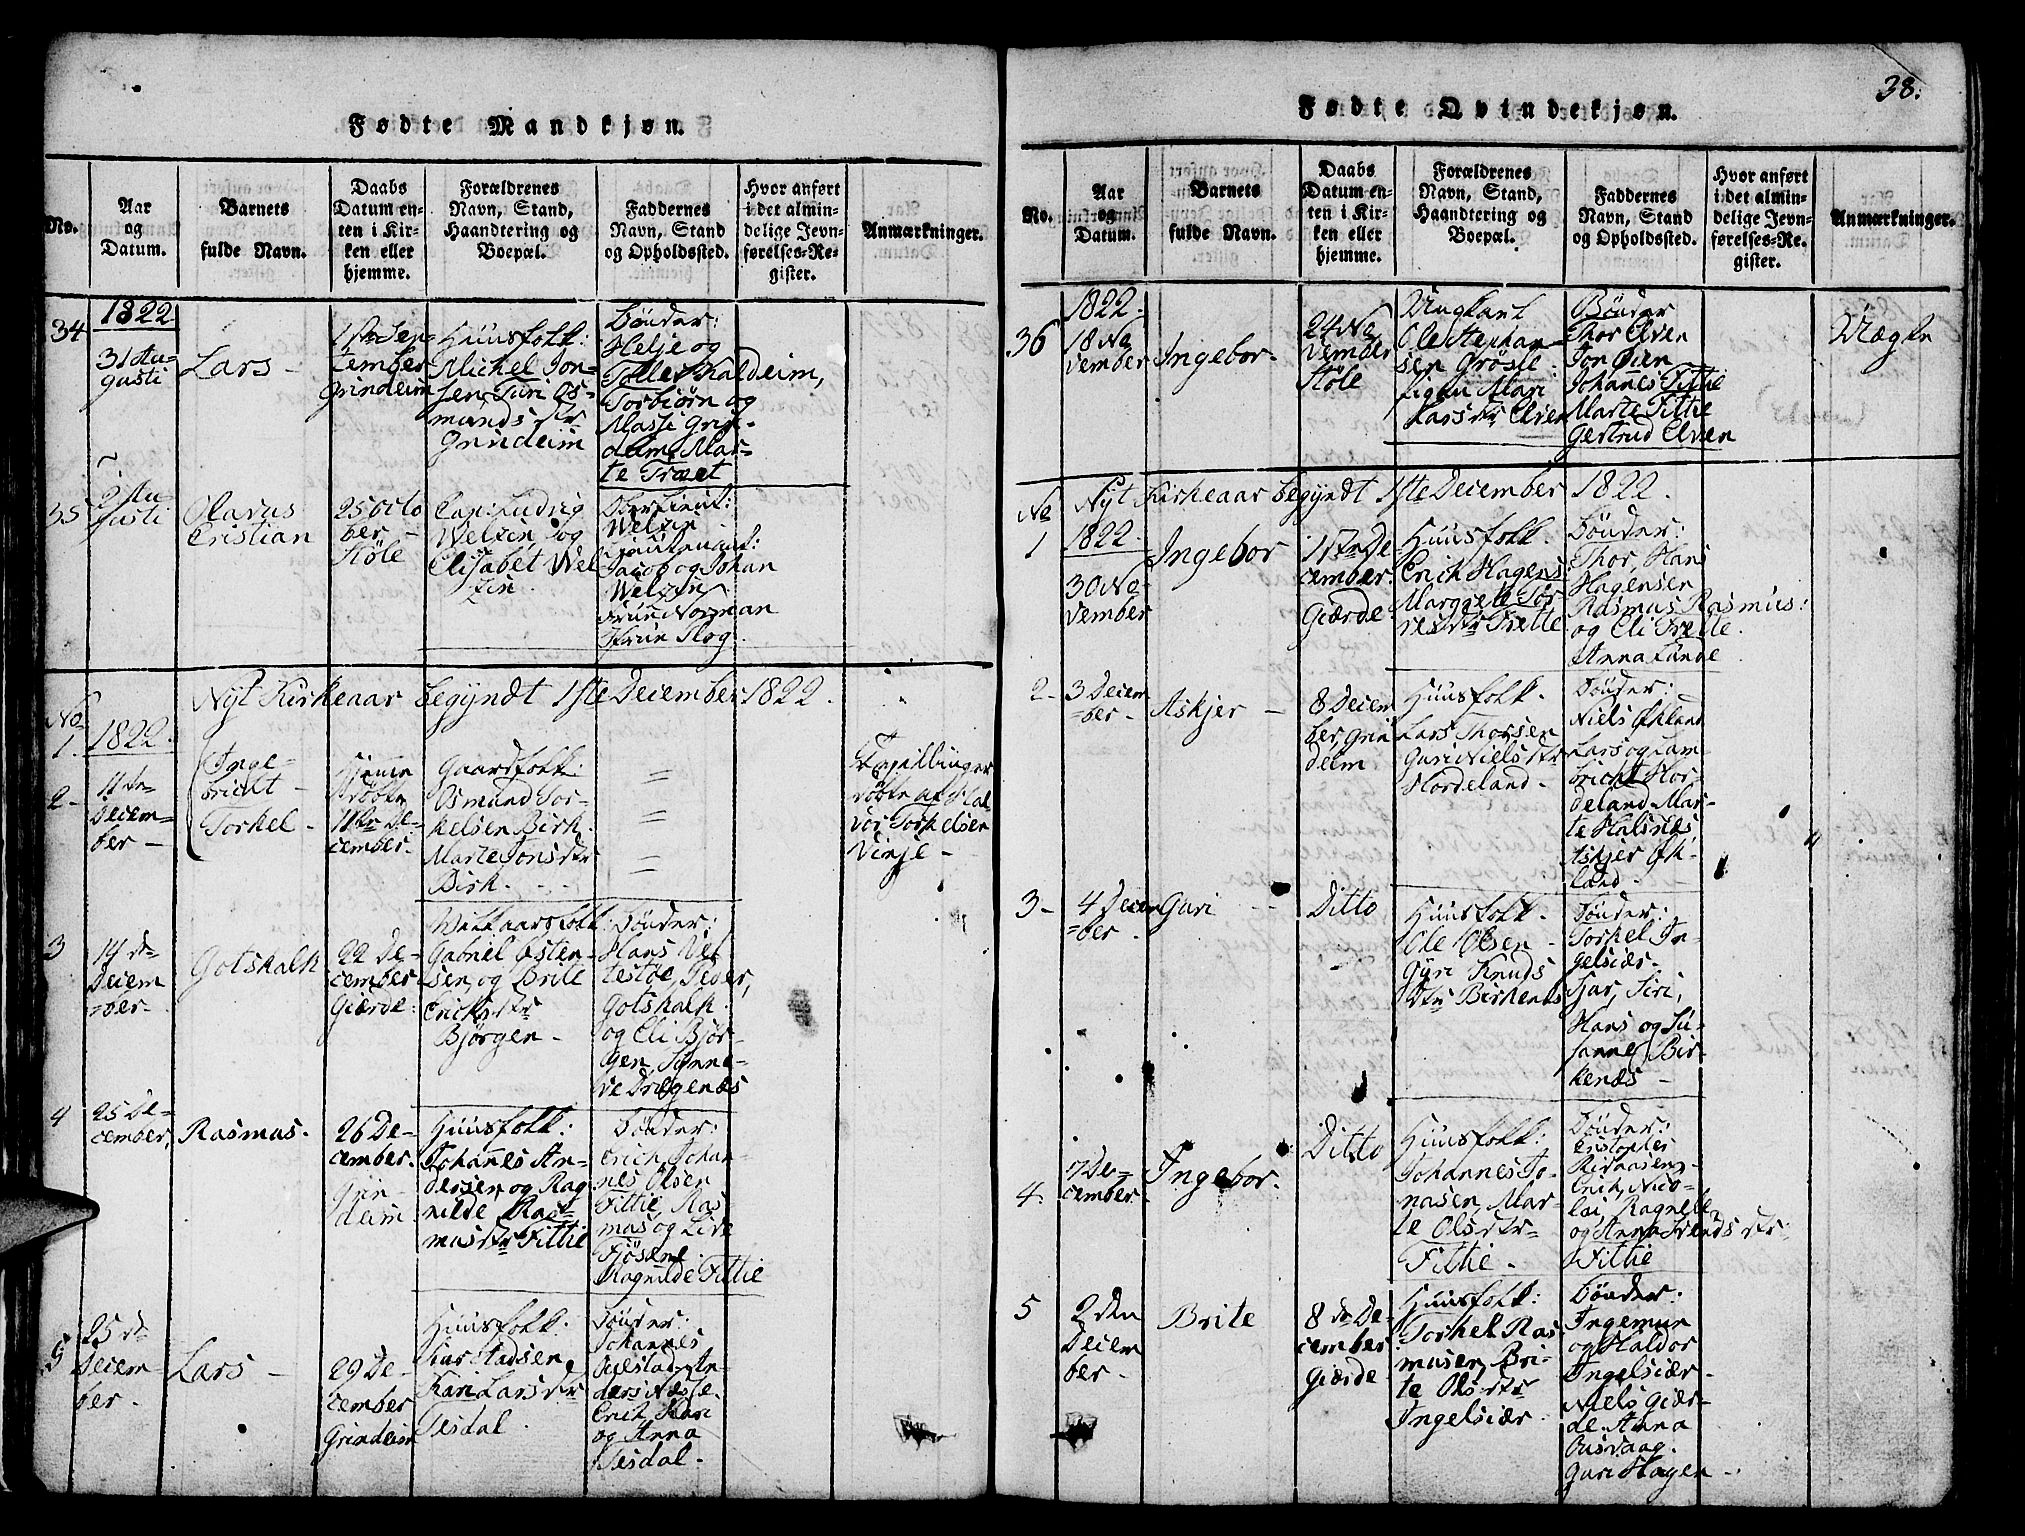 Fødte Mandkjøn.
No.
Aar
og
Datum.
Barnets
fulde Navn.
Daabs
Datum en-
ten i Kir-
ken eller
hjemme.
Forældrenes
Navn, Stand,
Haandtering og
Boepæl.
Faddernes
Navn, Stand
og Opholdssted.
Hvor anført
i det almin-
delige Jevn-
førelses-Re-
gister.
Anmærkninger.
34
1822
31 Au-
gusti
Lars -
1ste Sep-
tember
Grindeim
Huusfolk:
Michel Jon-
sen Turi Os-
munds dtr
Grindeim
Bønder:
Helje og
Tolle Skaldeim,
Torbiørn og
Massi Grin-
deim, Mar-
te Træet
35
2 Au-
gusti
Olavus
Cristian
25 Octo
ber -
Støle
Capt. Ludvig
Welzin og
Elisabet Wel
zin.
Oberst Lieut:
Welzin
Lieutenant:
Jacob og Johan
Welzin
Frue Norman
Frue Skog
Nyt Kirkeaar begyndt 1ste December 1822.
No
1.
2 -
1822.
11te
Decem-
ber -
Inge-
bricht -
Torkel -
Hjemme
døbte
11te De-
cember.
Gaardfolk:
Osmund Tor-
kelsen Birk.
Marte Jonsdtr
Birk.
Tvillinger
døbte af Hal-
vor Torkelsen
Vinje -
3
14 de
Decem
ber -
Gotskalk
22 De-
cember
Gierde:
Wilkaarsfolk:
Gabriel Østen-
sen og Brite
Ericksdtr
Bjørgen -
Bønder:
Hans Vel
testøe, Peder,
Gotskalk
og Eli Bjør-
gen, Sønne-
ve Drægenæs
4
25 De-
cember,
Rasmas.
26 De-
cember.
Grin-
deim
Huusfolk:
Johannes An-
dersen og Rag
nilde Ras-
musdtr Fittie
Bønder:
Erich, Johan-
nes Olsen
Fittie, Ras
mas og Live
Fjøsene
Ragnilde Fittie
5
25 de
Decem-
ber.
Lars -
29 De-
cember
Grindeim
Huusfolk:
Kari Larsdtr
Tesdal.
Bønder:
Johannes
Anders Næsse.
Erich, Kari
og Anna
Tesdal -
38.
Fødte Qvindekjøn.
No.
Aar
og
Datum.
Barnets
fulde Navn.
Daabs
Datum en-
ten i Kir-
ken eller
hjemme.
Forældrenes
Navn, Stand,
Haandtering og
Boepæl.
Faddernes
Navn, Stand
og Opholdssted.
Hvor anført
i det almin-
delige Jevn-
førelses-Re-
gister.
Anmærkninger.
36
1822.
18 No
vember
Ingebor.
24 No
vember
Støle
Ungkarl
Ole Stephan-
sen Grøsle
Pigen Mari
Larsdtr Elven
Bønder
Thor Elven
Jon Øien
Johannes Fittie
Marte Fittie
Gertrud Elven
Uægte
No
Nyt Kirkeaar begyndt 1ste December 1822.
1
1822.
30 No-
vember
Ingebor
1ste De-
cember.
Gierde.
Huusfolk.
Erich Hagens:
Margrete Tor
resdtr Frette
Bønder:
Thor, Hans
Hagensen
Rasmus Rasmus:
og Eli Frette.
Anna Lunde
2 -
3 Decem
ber -
Askjer -
8 Decem
ber, Grin
deim
Huusfolk.
Lars Thorsen
Guri Nielsdtr
Hordeland -
Bønder:
Niels Økland
Lars og Lam-
bricht Hor-
deland Mar-
te Halsnes
Askjer Øk-
land -
3 -
4 Decem
ber -
Guri -
Ditto
Huusfolk -
Ole Olsen -
Gyri Knuds
dtr Birkenes
Bønder:
Torkel In-
gelsiær.
Ivar, Siri,
Hans og Su-
sanne Bir-
kenæs -
4.
7 De-
cember.
Ingebor.
Ditto
Huusfolk:
Johannes Jo-
nasen, Mar-
te Olsdtr -
Fittie -
Bønder:
Cristopher
Erich, Nico-
lai, Ragnele
og Anna
Fittie
5
2 den
Decem
ber -
Brite
8 de De-
cember
Gierde
Huusfolk:
Torkel Ras
musen, Bri-
te Olsdtr
Ingelsiær
Bønder:
Ingemun
og Haldor
Ingelsiær -
Niels Giær-
de. Anna
Ousvaag.
Guri Hagen -